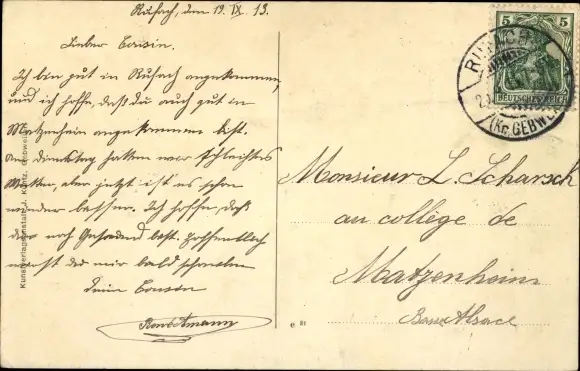 Rufach, den 19. IX 13.
Lieber Cousin.
Ich bin gut in Rufach angekommen,
und ich hoffe, daß du auch gut in
Matzenheim angekommen bist.
Am Dienstag hatten wir schlechtes
Wetter, aber jetzt ist es schon
wieder besser. Ich hoffe, daß
du noch Gesund bist. Hoffentlich
wirst du mir bald schreiben
Dein Cousin
René Amann
Kunstverlagsanstalt J. Kuntz, Gebweiler
5 5
DEUTSCHES REICH
RUFACH
(Kr. GEBWEILER)
Monsieur L. Scharsch
au collège de
Matzenheim
Basse Alsace